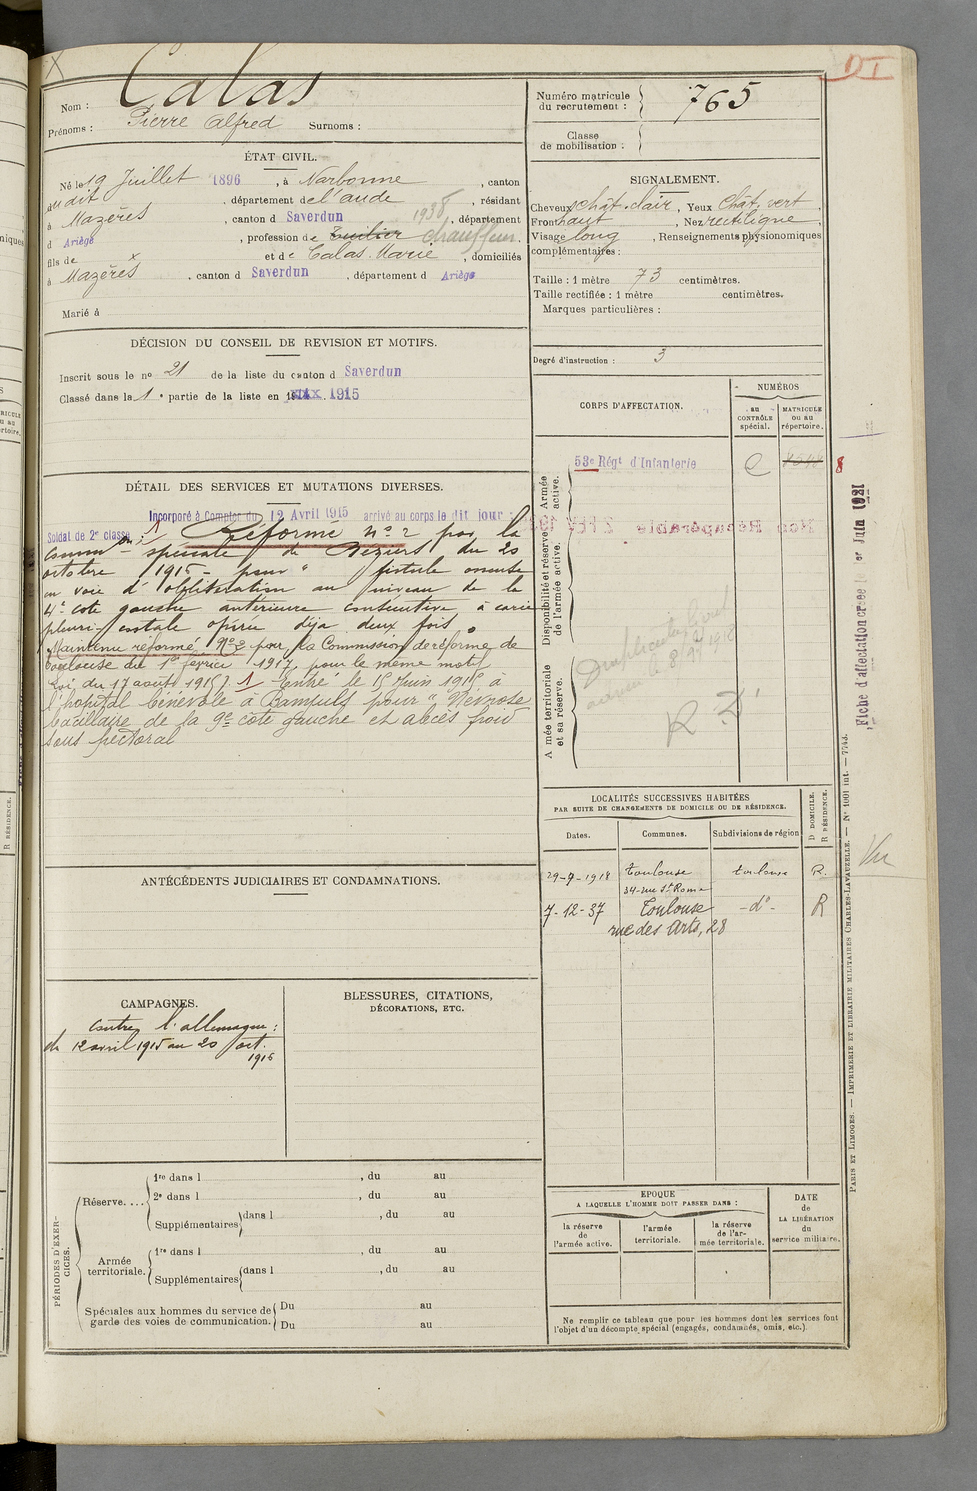 X
D I
Nom : Calas
Prénoms : Pierre Alfred Surnoms :
Numéro matricule du recrutement : 765
Classe de mobilisation :
ÉTAT CIVIL.
Né le 19 Juillet 1896, à Narbonne, canton
dudit, département de l'aude, résidant
à Mazères, canton d Saverdun 1938, département
d Ariège, profession de Tuilier chauffeur.
fils de x et de Calas Marie, domiciliés
à Mazères, canton d Saverdun, département d Ariège
Marié à
SIGNALEMENT.
Cheveux chât. clair, Yeux Chât. vert.
Front haut, Nez rectiligne
Visage long, Renseignements physionomiques
complémentaires :
Taille : 1 mètre 73 centimètres.
Taille rectifiée : 1 mètre centimètres.
Marques particulières :
Degré d'instruction : 3
DÉCISION DU CONSEIL DE REVISION ET MOTIFS.
Inscrit sous le no 21 de la liste du canton d Saverdun
Classé dans la 1e partie de la liste en 1915
CORPS D'AFFECTATION.
NUMÉROS
au CONTRÔLE spécial.
MATRICULE ou au répertoire.
Armée active.
53e Régt d'Infanterie
8
Disponibilité et réserve de l'armée active.
Non Récupérable
A mée territoriale et sa réserve.
R
DÉTAIL DES SERVICES ET MUTATIONS DIVERSES.
Incorporé à Compter du 12 Avril 1915 arrivé au corps le dit jour
Soldat de 2e classe
Réformé No 2 par la
Common spéciale de Béziers du 20
octobre 1915 - pour " fistule osseuse
en voie d'oblitération au niveau de la
4e côte gauche antérieure consécutive à carie
pleuri-costale opérée déjà deux fois.
Maintenu réformé No 2 par la Commission de réforme de
Toulouse du 1er février 1917, pour le même motif
Loi du 17 août 1915). 1 Entré le 15 Juin 1915 à
l'hopital Bénévole à Bamyuls pour " Névrose
bacillaire de la 9e côte gauche et abcès froid
sous pectoral
Fiche d'affectation créée le 1er Juin 1921
LOCALITÉS SUCCESSIVES HABITÉES
PAR SUITE DE CHANGEMENTS DE DOMICILE OU DE RÉSIDENCE.
D DOMICILE.
R RÉSIDENCE.
Dates. Communes. Subdivisions de région
29-9-1918 Toulouse toulouse R.
34-rue St Rome
7-12-37 Toulouse -do- R
rue des Arts, 28
Vu
ANTÉCÉDENTS JUDICIAIRES ET CONDAMNATIONS.
CAMPAGNES.
Contre l'allemagne :
du 12 avril 1915 au 20 oct.
1915
BLESSURES, CITATIONS,
DÉCORATIONS, ETC.
PÉRIODES D'EXERCICES.
Réserve....
1re dans l , du au
2e dans l , du au
Supplémentaires dans l , du au
Armée territoriale.
1re dans l , du au
Supplémentaires dans l , du au
Spéciales aux hommes du service de garde des voies de communication.
Du au
Du au
EPOQUE
A LAQUELLE L'HOMME DOIT PASSER DANS :
la réserve de l'armée active.
l'armée territoriale.
la réserve de l'armée territoriale.
DATE de LA LIBÉRATION du service militaire.
Ne remplir ce tableau que pour les hommes dont les services font
l'objet d'un décompte spécial (engagés, condamnés, omis, etc.).
PARIS ET LIMOGES. — IMPRIMERIE ET LIBRAIRIE MILITAIRES CHARLES-LAVAUZELLE. — No 1001 int. — 7743.
R RÉSIDENCE.